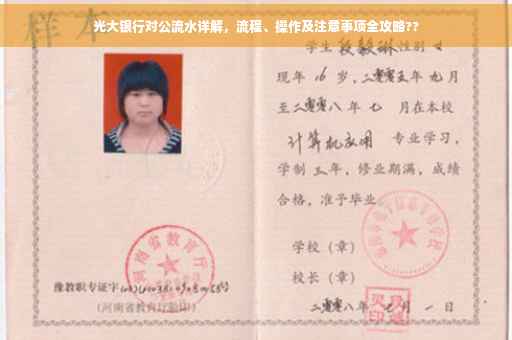 样本
光大银行对公流水详解，流程、操作及注意事项全攻略??
学生 段毅琳 性别 女
现年 16 岁，二零零五年 九月
至二零零八年 七 月在本校
计算机应用 专业学习，
学制 三年，修业期满，成绩
合格，准予毕业
学校（章）
校长（章）
河南省教育厅
豫教职专证字
(河南省教育厅验印)
二零零八年 七月 一日